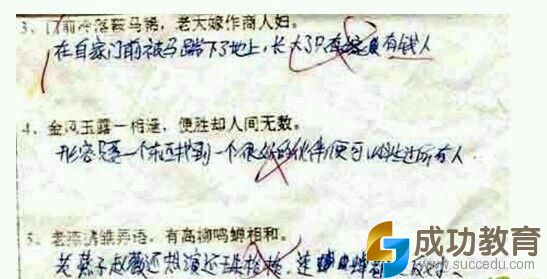 3、门前冷落鞍马稀，老大嫁作商人妇。
在自家门前被马踏下了地上，长大了只有嫁有钱人
4、金风玉露一相逢，便胜却人间无数。
形容只要一个东西找到一个很好的伙伴便可以胜过所有人.
5、老燕携雏弄语，有高柳鸣蝉相和。
老燕子
成功教育
www.succedu.com